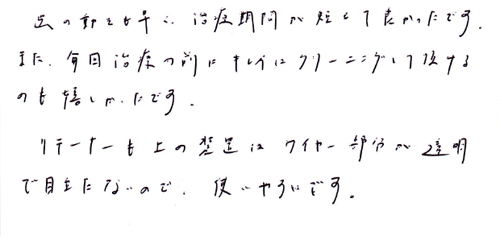 歯の動きも早く、治療期間が短くて良かったです。
また、毎回治療の前にキレイにクリーニングして頂ける
のも嬉しかったです。
リテーナーも上の装置はワイヤー部分が透明
で目立たないので、使いやすいです。